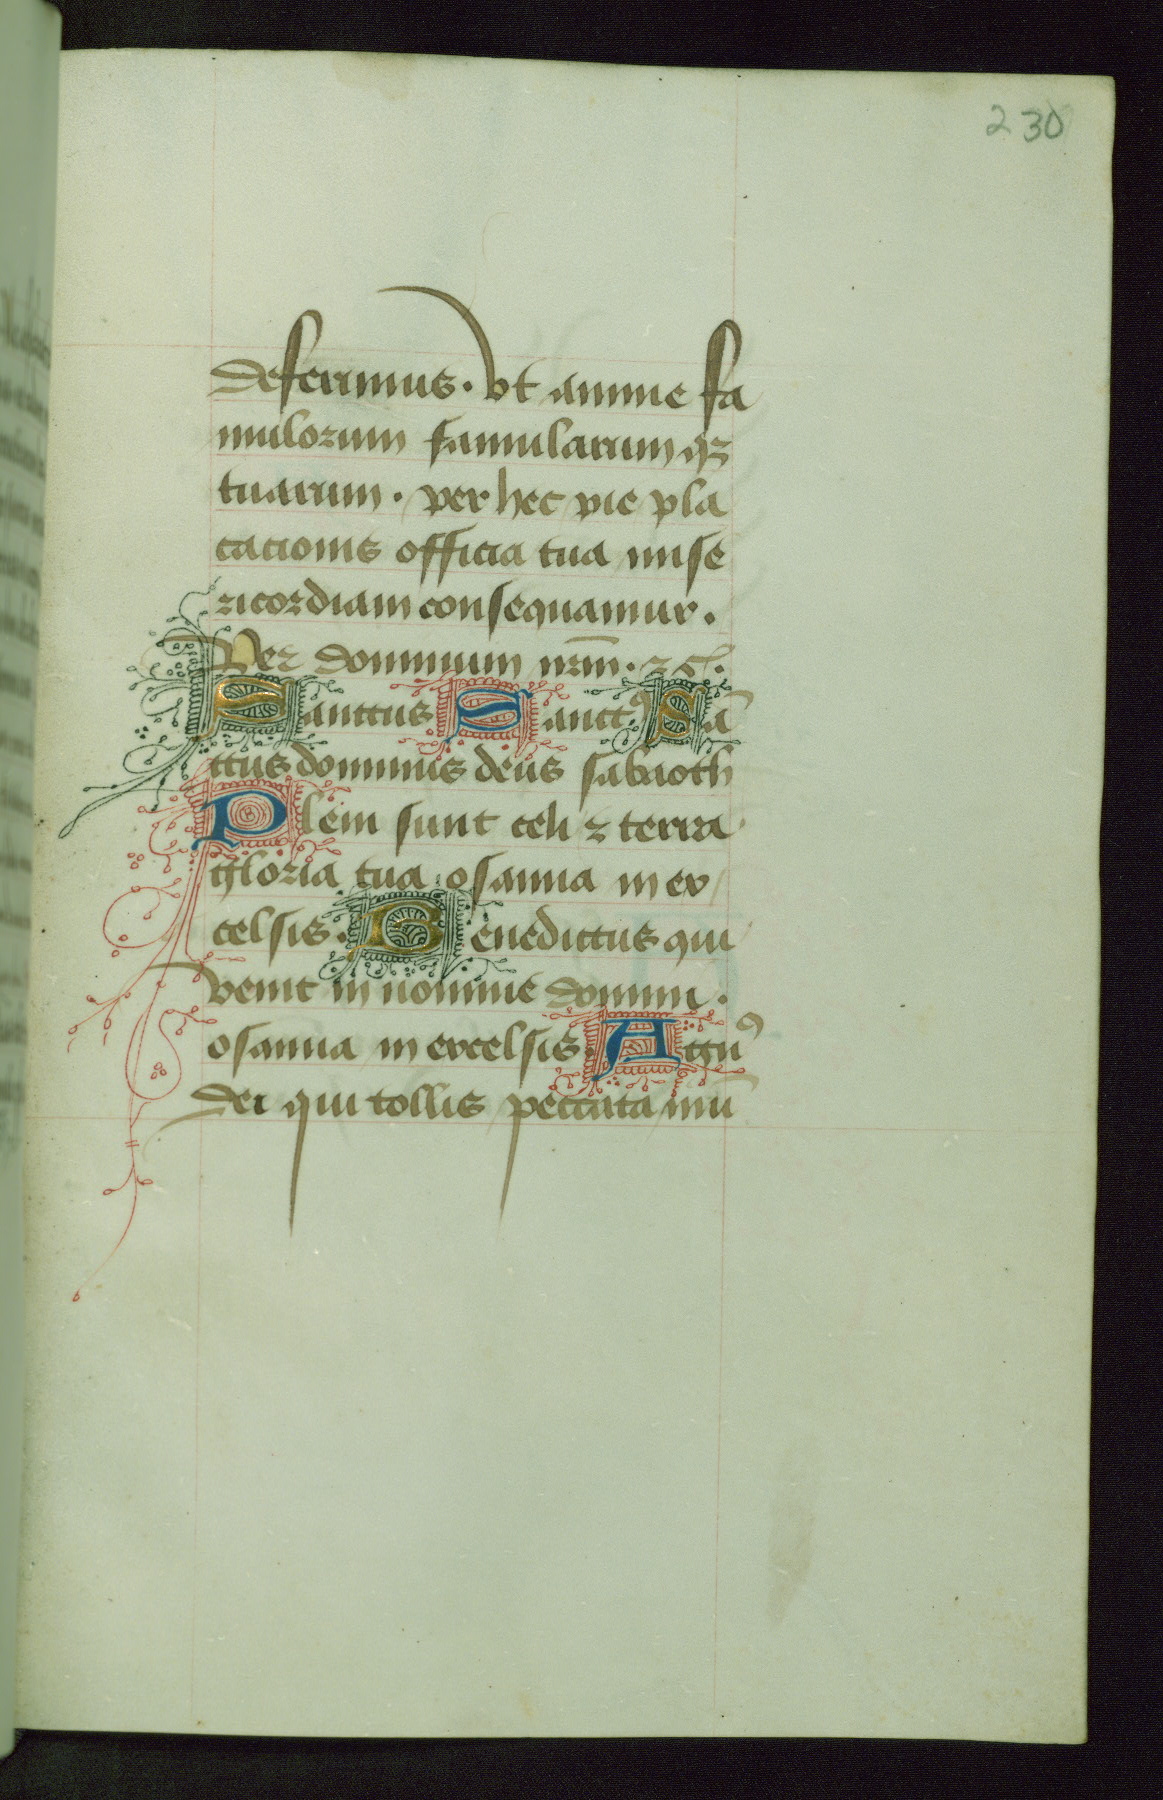 230
deferimus. vt anime fa
mulorum famularumqꝫ
tuarum. per hec pie pla
cacionis officia tua mise
ricordiam consequamur.
Per dominum nr̄m. ⁊ cͣ.
Sanctus Sanctꝰ Sā
ctus dominus deus sabaoth
Pleni sunt celi ⁊ terra
gloria tua osanna in ex
celsis. Benedictus qui
venit in nomine domini.
osanna in excelsis. Agnꝰ
dei qui tollis peccata mū